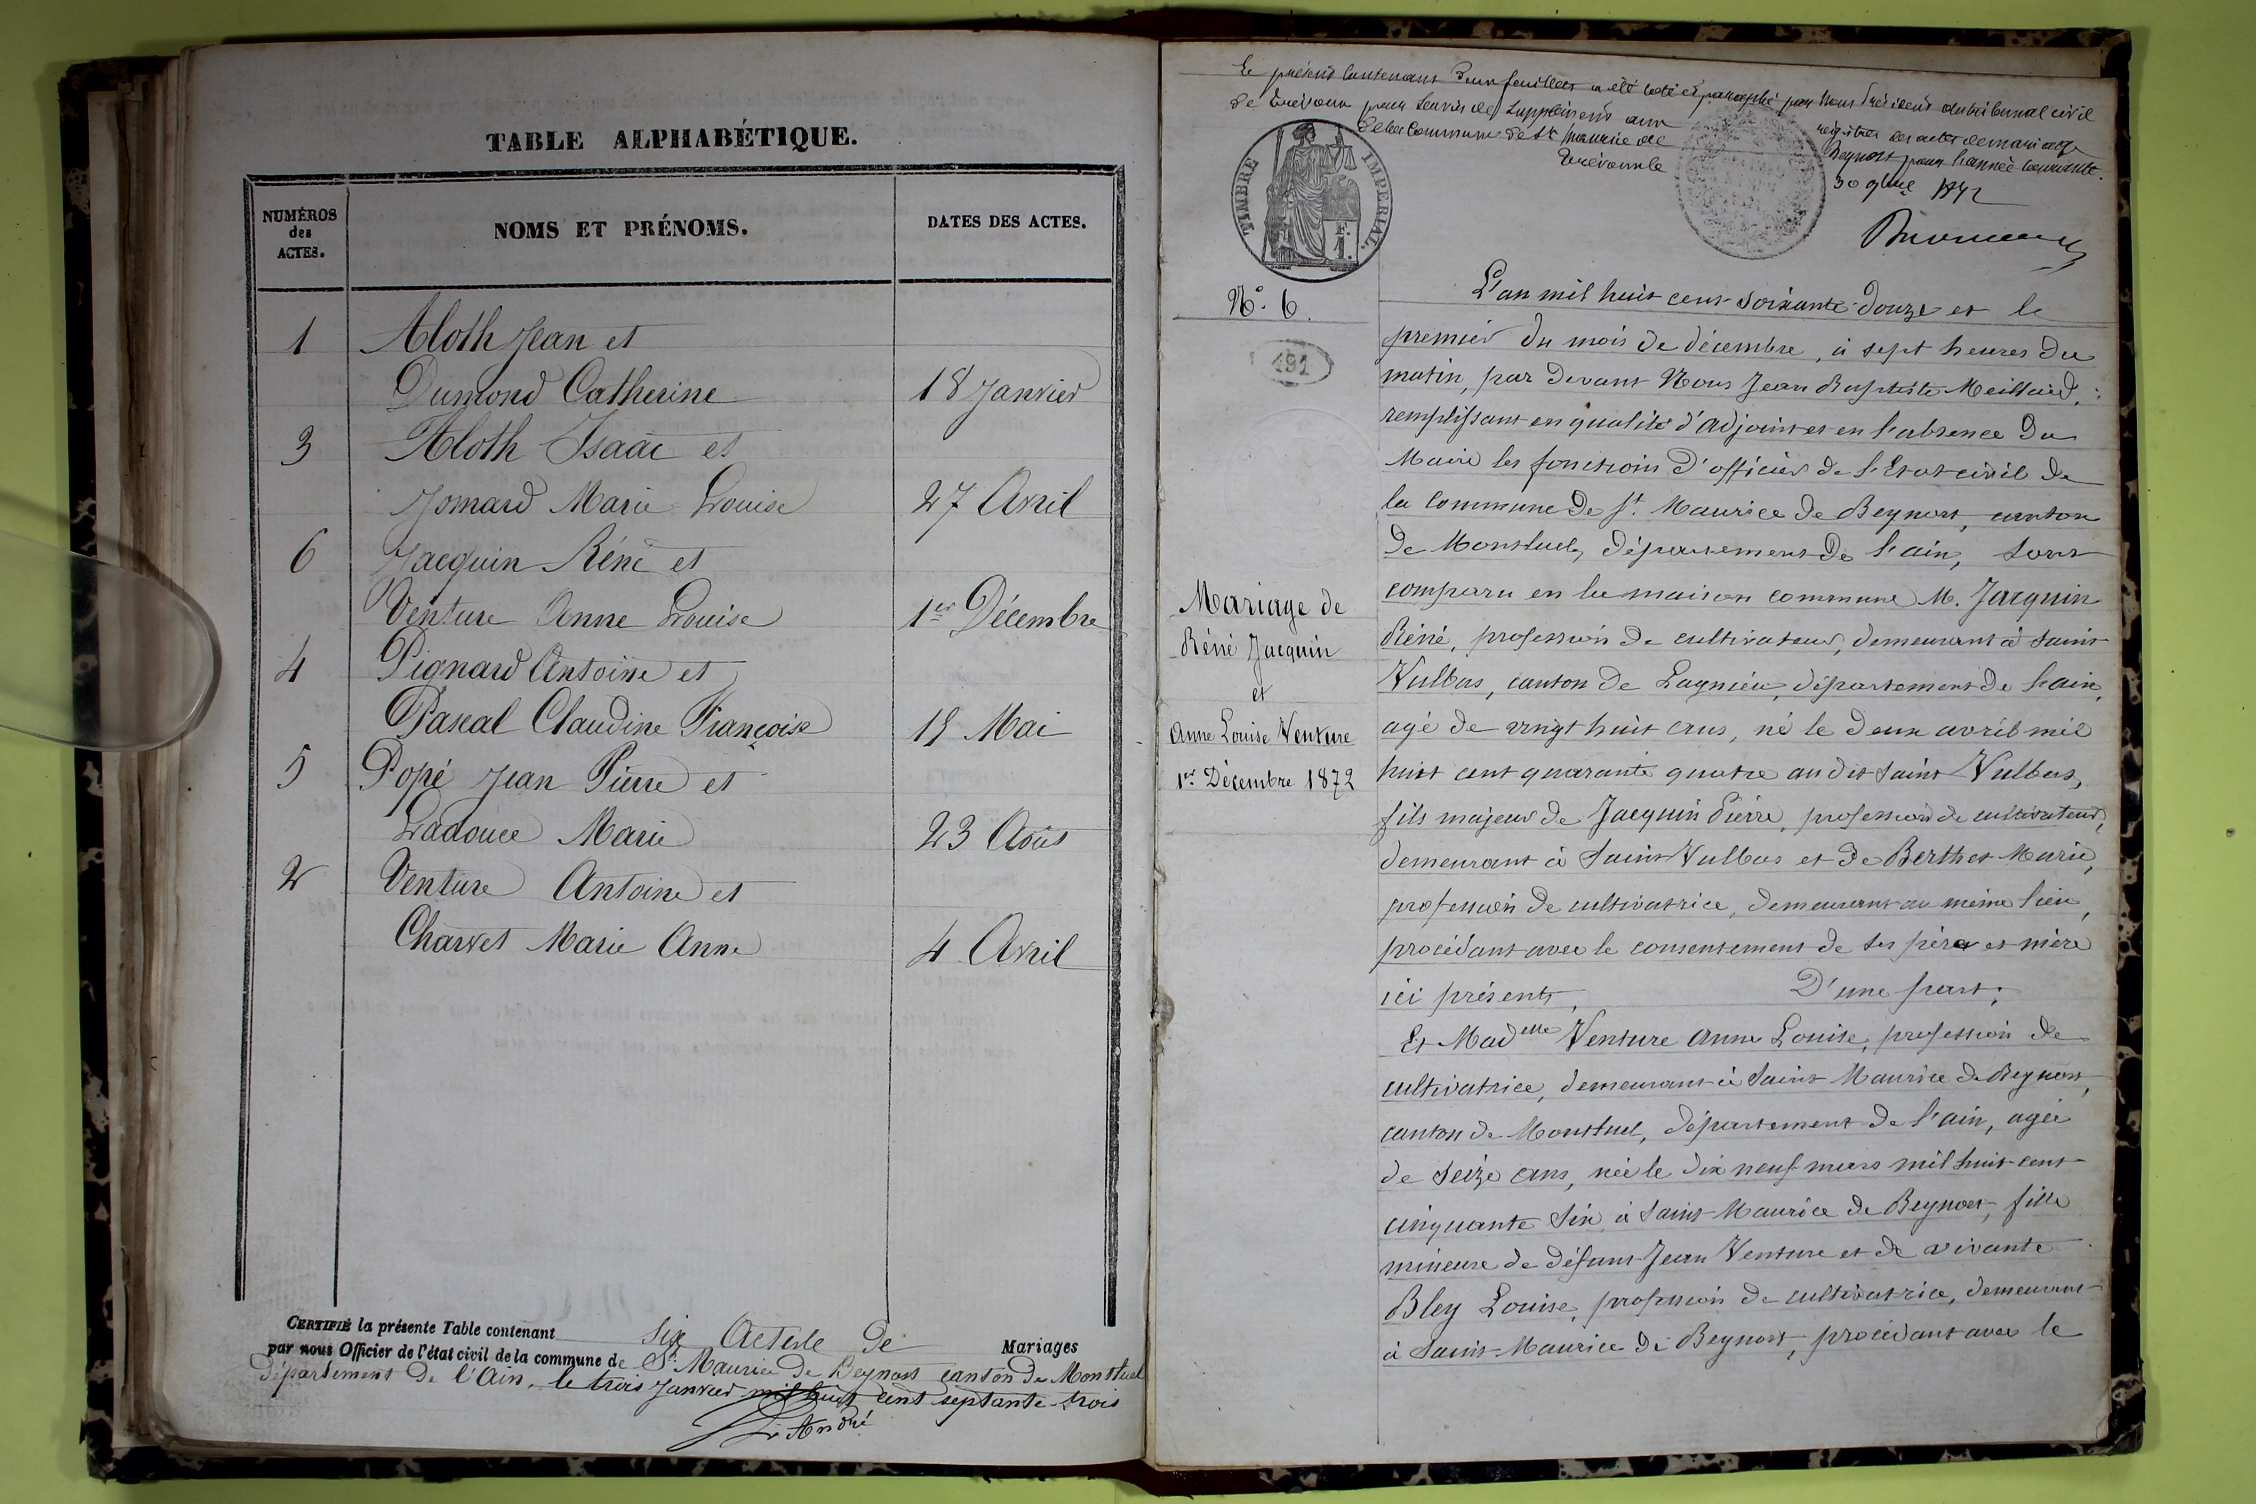 TABLE ALPHABÉTIQUE.
NUMÉROS
des
ACTES.
NOMS ET PRÉNOMS.
DATES DES ACTES.
1 Aloth Jean et
Dumond Catherine 18 Janvier
3 Aloth Isaac et
Jomard Marie Louise 27 Avril
6 Jacquin Réné et
Venture Anne Louise 1er Décembre
4 Pignard Antoine et
Pascal Claudine Françoise 15 Mai
5 Popé Jean Pierre et
Ladouce Marie 23 Août
2 Venture Antoine et
Charvet Marie Anne 4 Avril
CERTIFIÉ la présente Table contenant six Acte de Mariages
par nous Officier de l'état civil de la commune de St. Maurice de Beynost canton de Montluel
département de l'Ain, le trois Janvier mil huit cent septante-trois
André
Le présent contenant deux feuillets a été coté et paraphé par Nous Président du tribunal civil
de Trévoux pour servir de supplément aux registres des actes de mariage
de la Commune de St Maurice de Beynost pour l'année courante.
Trévoux le 30 9bre 1872
TIMBRE IMPÉRIAL.
F.
1.
No. 6.
191
Mariage de
Réné Jacquin
et
Anne Louise Venture
1er Décembre 1872
L'an mil huit cent soixante-douze et le
premier du mois de décembre, à sept heures du
matin, par devant Nous Jean Baptiste Meillard,
remplissant en qualité d'adjoint et en l'absence du
Maire les fonctions d'officier de l'Etat civil de
la commune de St. Maurice de Beynost, canton
de Montluel, département de l'ain, sont
comparu en la maison commune M. Jacquin
Réné, profession de cultivateur, demeurant à saint
Vulbas, canton de Lagnieu, département de l'ain,
agé de vingt huit ans, né le deux avril mil
huit cent quarante quatre au dit saint Vulbas,
fils majeur de Jacquin Pierre, profession de cultivateur,
demeurant à saint Vulbas et de Berthet Marie,
profession de cultivatrice, demeurant au même lieu,
procédant avec le consentement de ses père et mère
ici présents, D'une part;
Et Madelle Venture Anne Louise, profession de
cultivatrice, demeurant à Saint Maurice de Beynost,
canton de Montluel, département de l'ain, agée
de seize ans, née le dix neuf mars mil huit cent
cinquante six à saint Maurice de Beynost, fille
mineure de défunt Jean Venture et de vivante
Bley Louise, profession de cultivatrice, demeurant
à Saint-Maurice de Beynost, procédant avec le